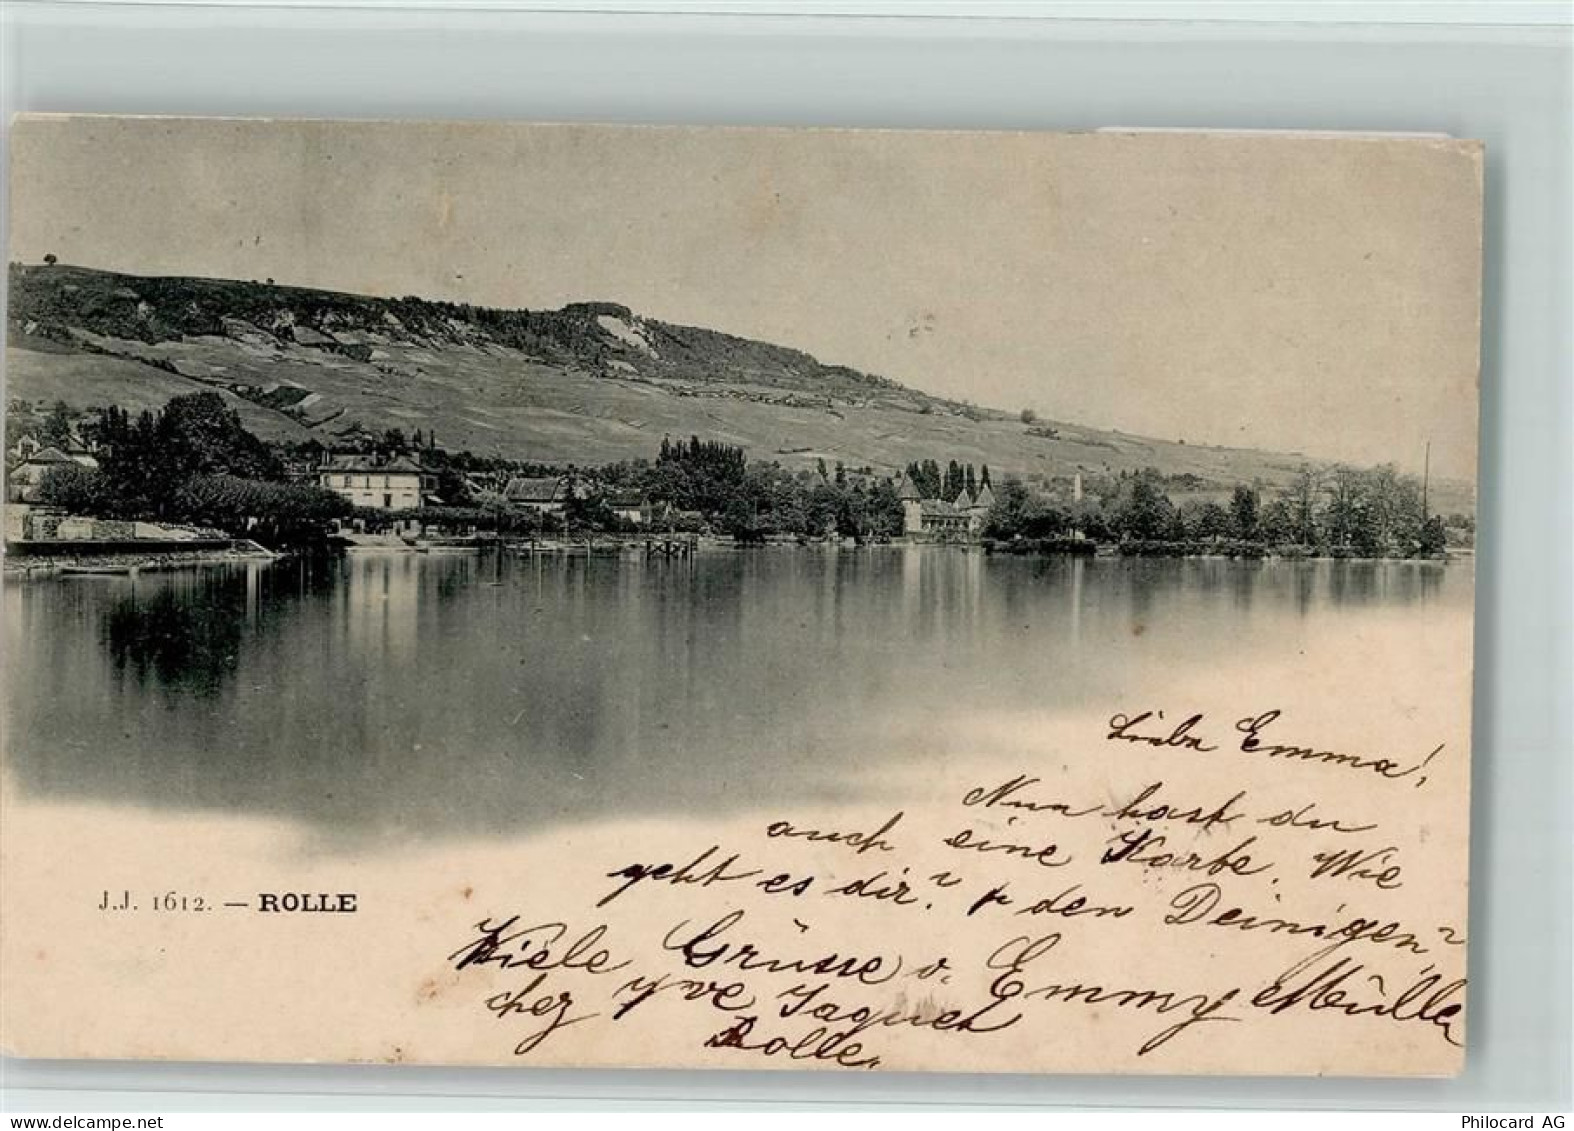 Liebe Emma!
Nun hast du
auch eine Karte. Wie
geht es dir? & den Deinigen?
Viele Grüsse v. Emmy Müller
chez Yve Jaquet
Rolle.
J.J. 1612. — ROLLE
www.delcampe.net
Philocard AG